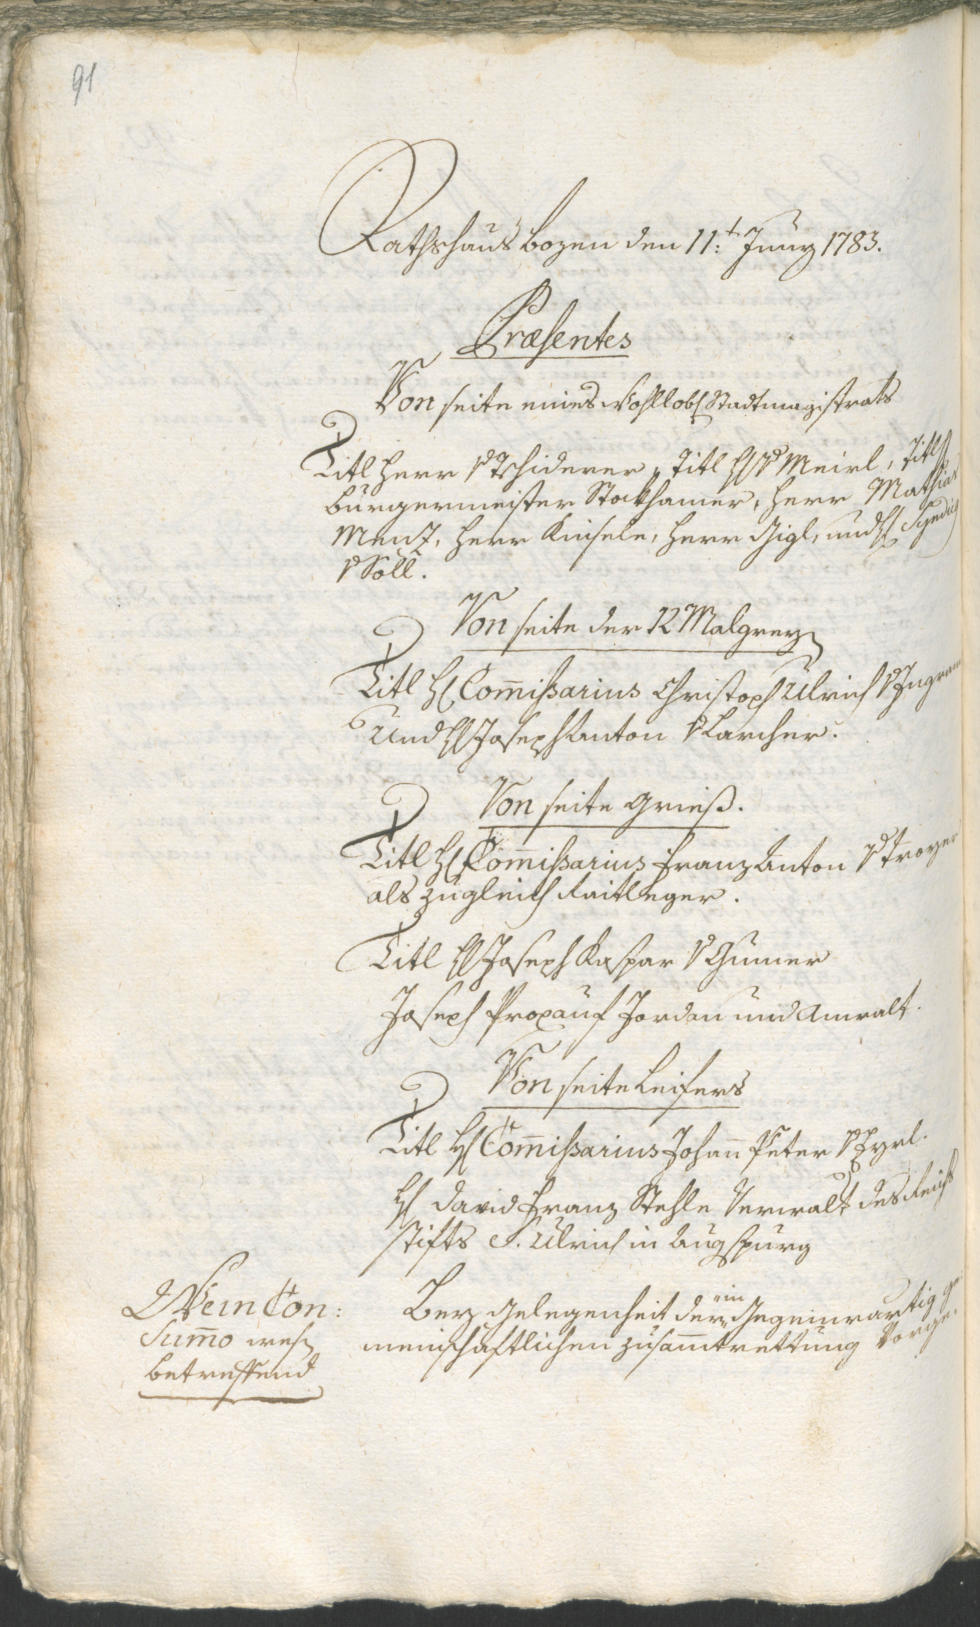 91
Rathshaus Bozen den 11:t Juny 1783.
Præsentes
Von seite eines Wohllobl Stadtmagistrats
Titl Herr v Tschiderer, Titl H v Meirl, Titl H
Bürgermeister Stockhamer, Herr Mathias
Menz, Herr Kinsele, Herr Gigl, und H Syndic
v Söll.
Von seite der 12 Malgrey
Titl H Com̄ißarius Christoph Ulrich v Ingram
Und H Joseph Anton v Larcher.
Von seite Grieß.
Titl H Com̄ißarius Franz Anton v Troyer
als zugleich Raitleger.
Titl H Joseph Kaspar v Gumer
Joseph Propauf Jordan und Anwalt.
Von seite Leifers
Titl H Com̄ißarius Johan̄ Peter v Zyrl.
H David Franz Stehle Verwalt des Reichs
stifts S. Ulrich in Augspurg
Wein Con:
Sum̄o wesen
betreffend
Bey Gelegenheit der ein Gegenwärtig ge
meinschaftlichen zusam̄trettung Vorge: